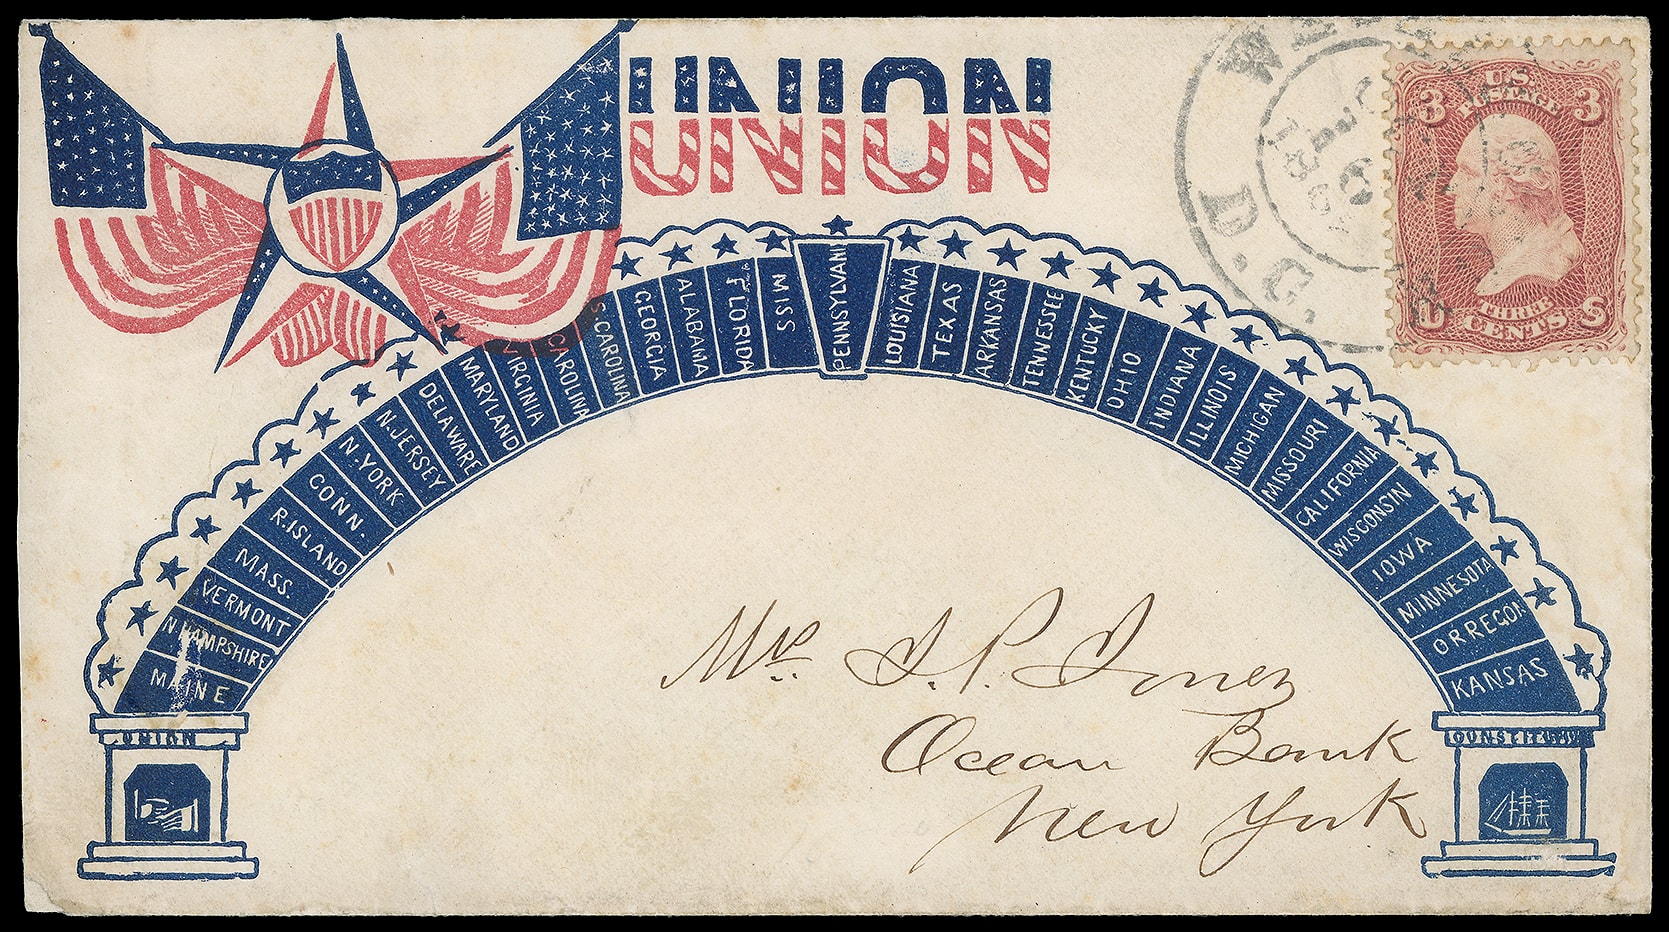 UNION
U.S.
POSTAGE
3 3
THREE
CENTS
U S
D.C.
MAINE
N HAMPSHIRE
VERMONT
MASS.
R.ISLAND
CONN.
N.YORK
N.JERSEY
DELAWARE
MARYLAND
VIRGINIA
CAROLINA
S.CAROLINA
GEORGIA
ALABAMA
FLORIDA
MISS
PENNSYLVANI
LOUISIANA
TEXAS
ARKANSAS
TENNESSEE
KENTUCKY
OHIO
INDIANA
ILLINOIS
MICHIGAN
MISSOURI
CALIFORNIA
WISCONSIN
IOWA
MINNESOTA
ORREGON
KANSAS
UNION
CONSTITUTION
Ocean Bank
New York